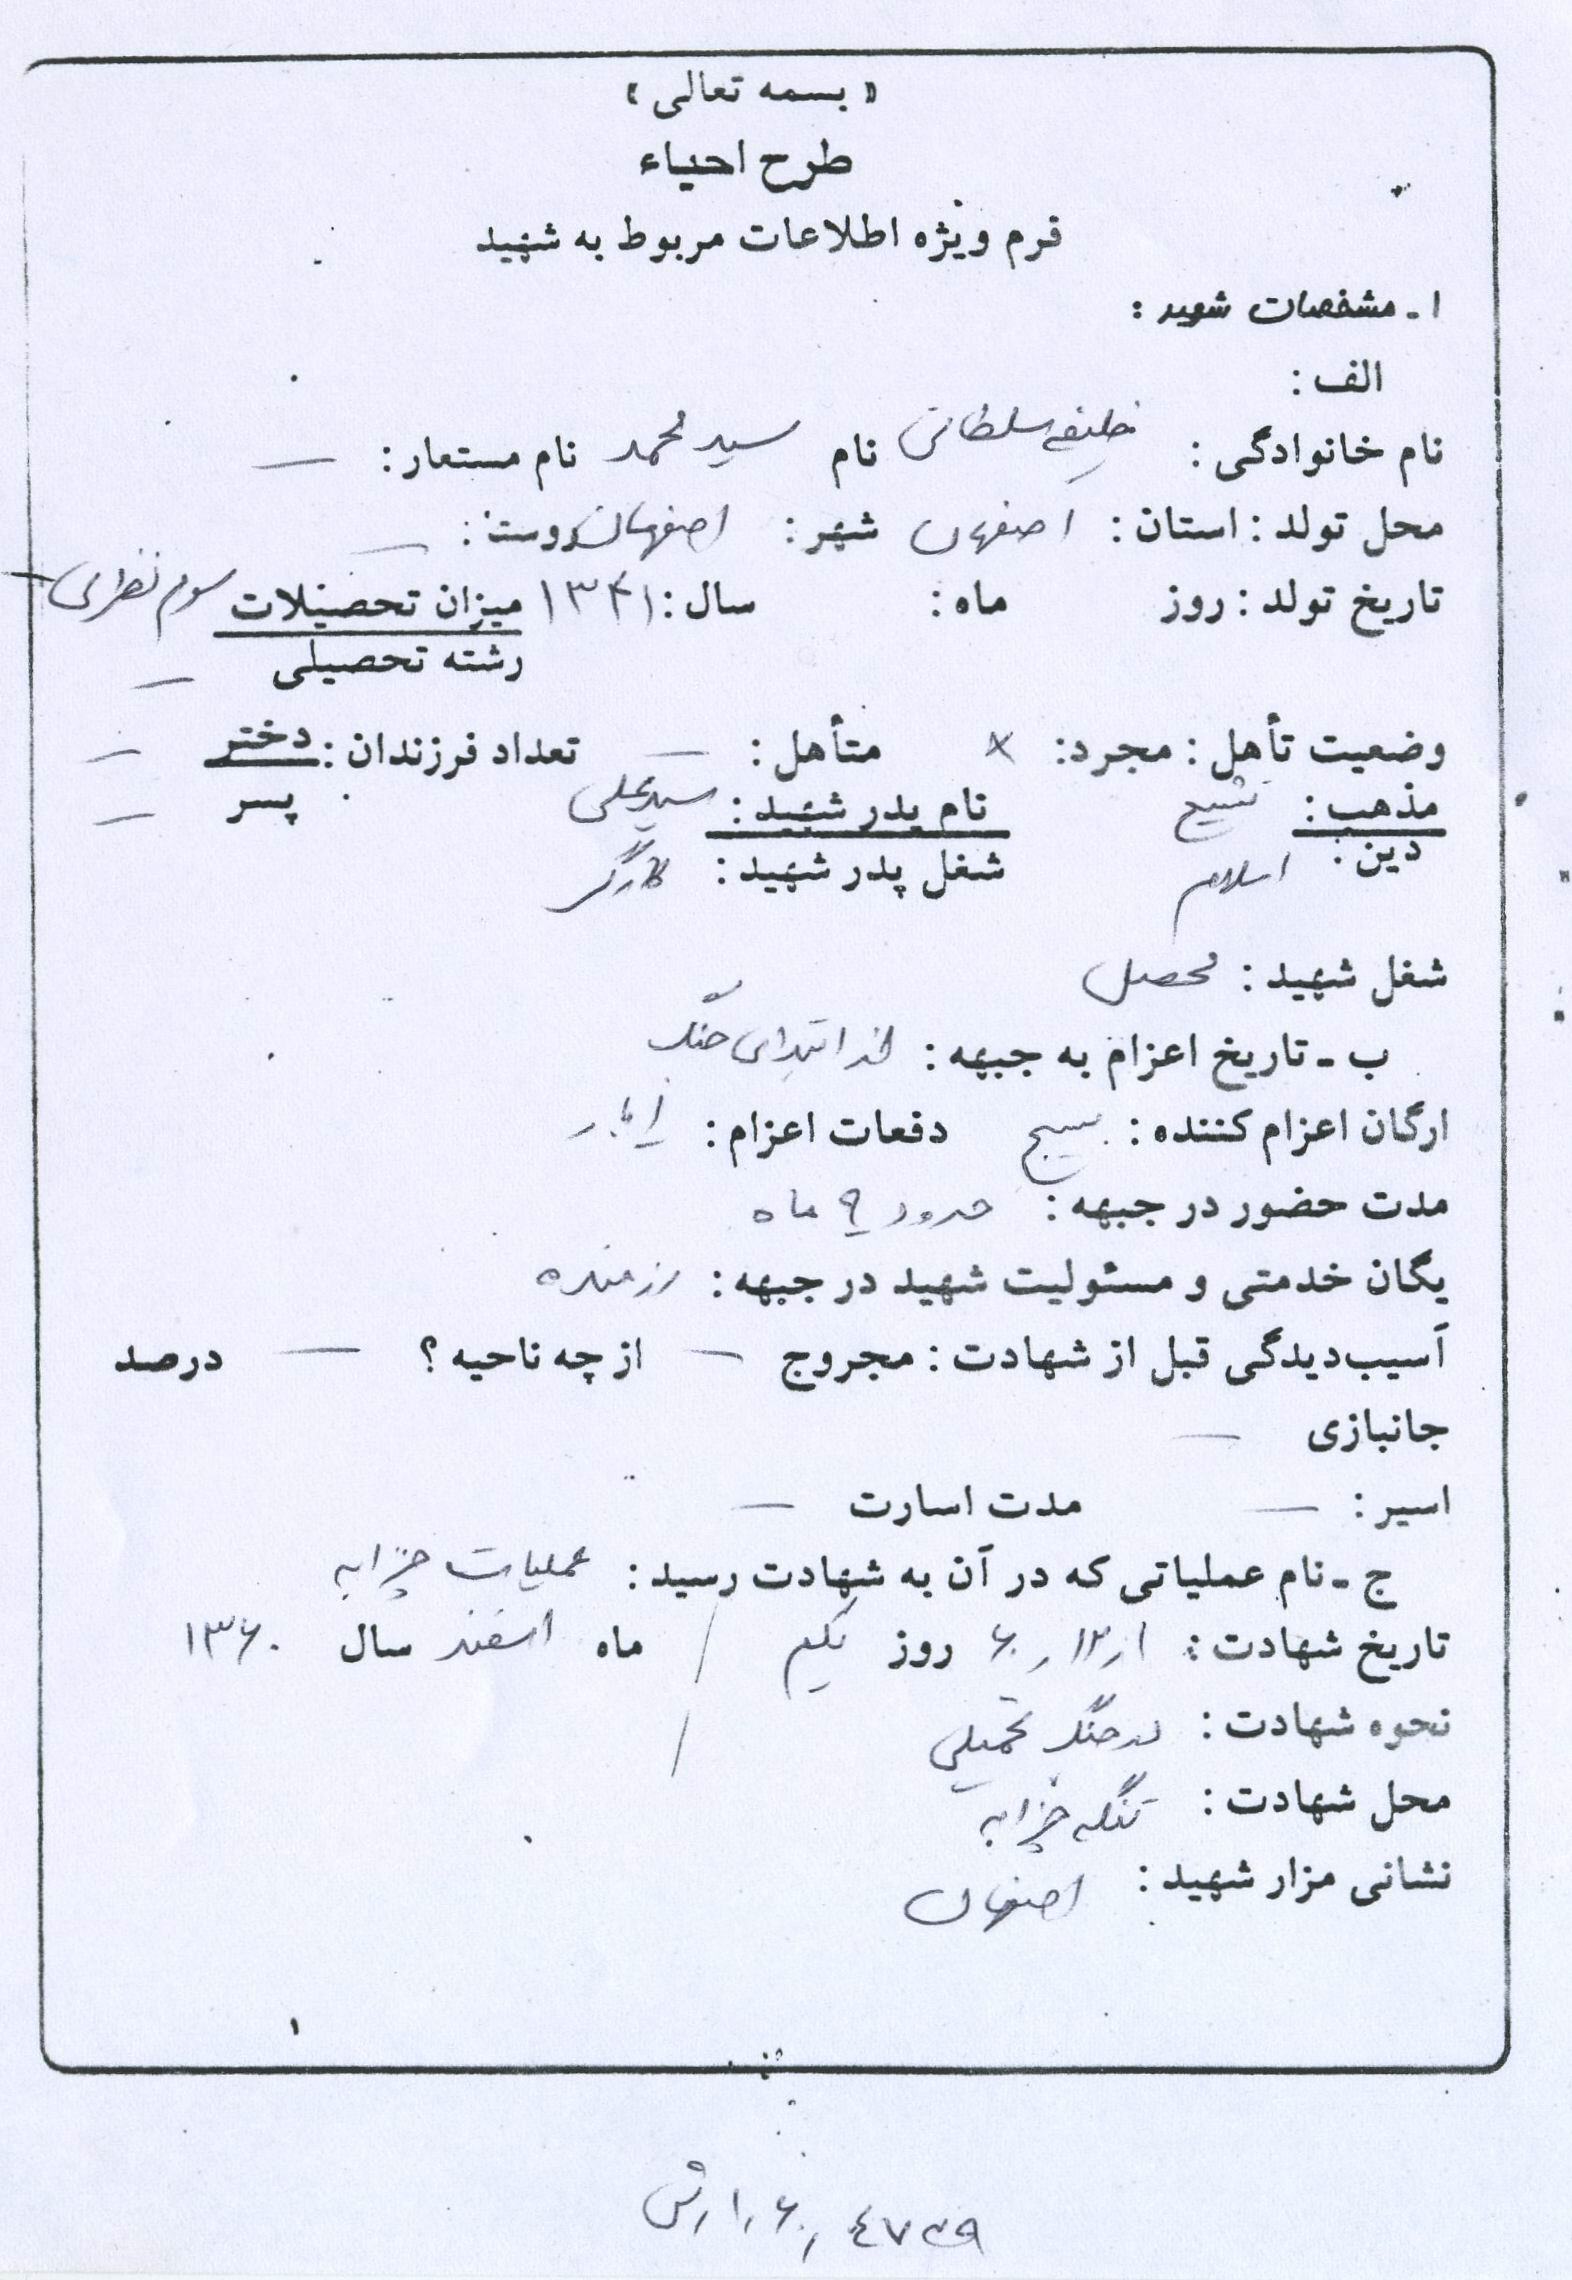 « بسمه تعالی »
طرح احیاء
فرم ویژه اطلاعات مربوط به شهید
۱ـ مشخصات شهید :
الف :
نام خانوادگی : خلیفه سلطانی نام سید محمد نام مستعار : —
محل تولد : استان : اصفهان شهر : اصفهان روستا : —
تاریخ تولد : روز ماه : سال : ۱۳۴۱ میزان تحصیلات سوم نظری
رشته تحصیلی —
وضعیت تأهل : مجرد : × متأهل : — تعداد فرزندان : دختر —
مذهب : تشیع نام پدر شهید : سید علی پسر —
دین : اسلام شغل پدر شهید : کارگر
شغل شهید : محصل
ب ـ تاریخ اعزام به جبهه : از ابتدای جنگ
ارگان اعزام کننده : بسیج دفعات اعزام :
مدت حضور در جبهه : حدود ۹ ماه
یگان خدمتی و مسئولیت شهید در جبهه : رزمنده
آسیب‌دیدگی قبل از شهادت : مجروح — از چه ناحیه ؟ — درصد
جانبازی —
اسیر : — مدت اسارت —
ج ـ نام عملیاتی که در آن به شهادت رسید : عملیات چزابه
تاریخ شهادت : ۱ر۱۲ر۶۰ روز یکم / ماه اسفند سال ۱۳۶۰
نحوه شهادت : در جنگ تحمیلی /
محل شهادت : تنگه چزابه
نشانی مزار شهید : اصفهان
۱